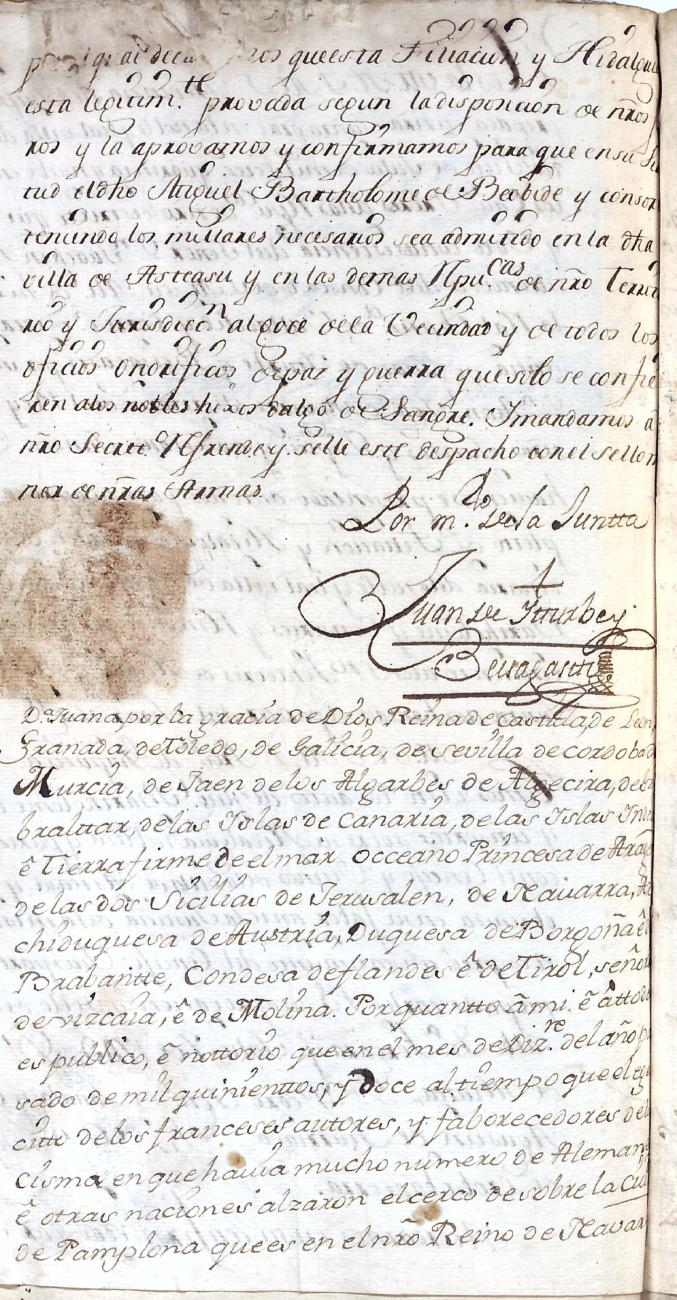 que esta Filiacion y Hidalgui
esta legitim.te provada segun la disposicion de nr̃os
ros y la aprovamos y confirmamos para que en su
tud el dho Miguel Bartholome de Beobide y consor
teniendo los millares necesarios sea admitido en la dha
villa de Asteasu y en las demas Rpu.cas de nr̃o Terri
reo y Jurisdicc.n al goce de la Vecindad y de todos los
oficios onorificos de paz y guerra que solo se confie
ren a los nobles hixos dalgo de Sangre. Y mandamos a
nr̃o Secret.o Refrende y selle este despacho con el sello m
nor de nr̃as Armas.
Por m.do de la Juntta
Juan de Ytturbe y
Berragastti
D.a Juana por la gracia de Dios Reina de Casttilla, de Leon,
Granada, de Toledo, de Galicia, de Sevilla de Cordoba d
Murcia, de Jaen de los Algarbes de Algecira, de
bralttar, de las Yslas de Canaria, de las Yslas Ynd
ê Tierra firme de el mar occeano Princesa de Arag
de las dos Sicilias de Jerusalen, de Navarra, A
chiduquesa de Austria, Duquesa de Borgoña ê
Brabantte, Condesa de flandes ê de Tirol, señor
de vizcaia, ê de Molina. Por quantto â mi ê â ttodo
es publico, ê nottorio que en el mes de Diz.re del año pa
sado de mil quinienttos, y doce al tiempo que el eger
citto de los franceses autores, y faborecedores del
cisma en que havia mucho numero de Aleman
ê otras naciones alzaron el cerco de sobre la Ciu
de Pamplona que es en el nr̃o Reino de Navar